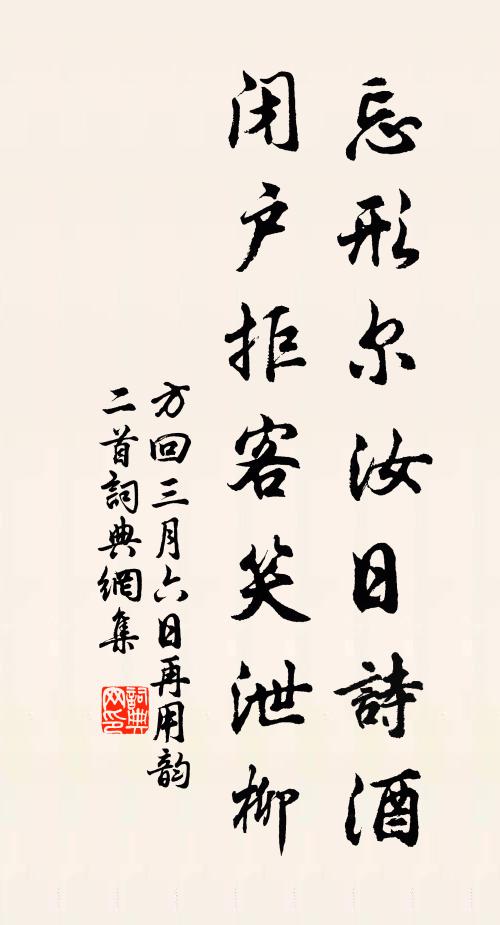 忘形尔汝日詩酒
闭户拒客笑泄柳
方回三月六日再用韵
二首詞典網集
詞典
网印